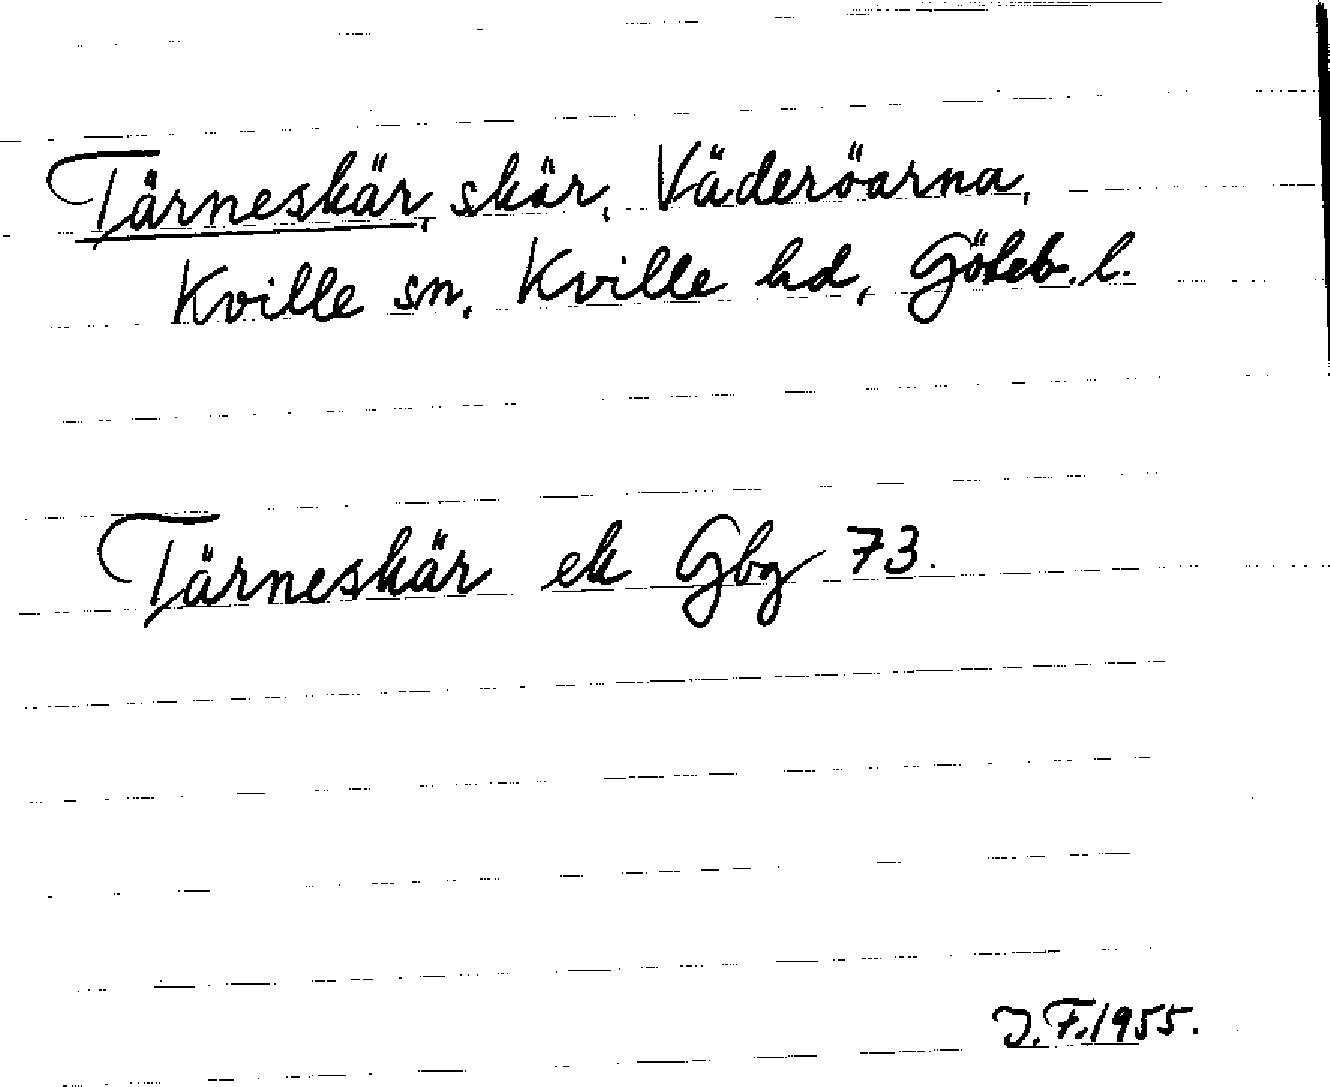 Tärneskär, skär, Väderöarna,
Kville sn, Kville hd, Göteb. l.
Tärneskär ek Gbg 73.
J. F. 1955.